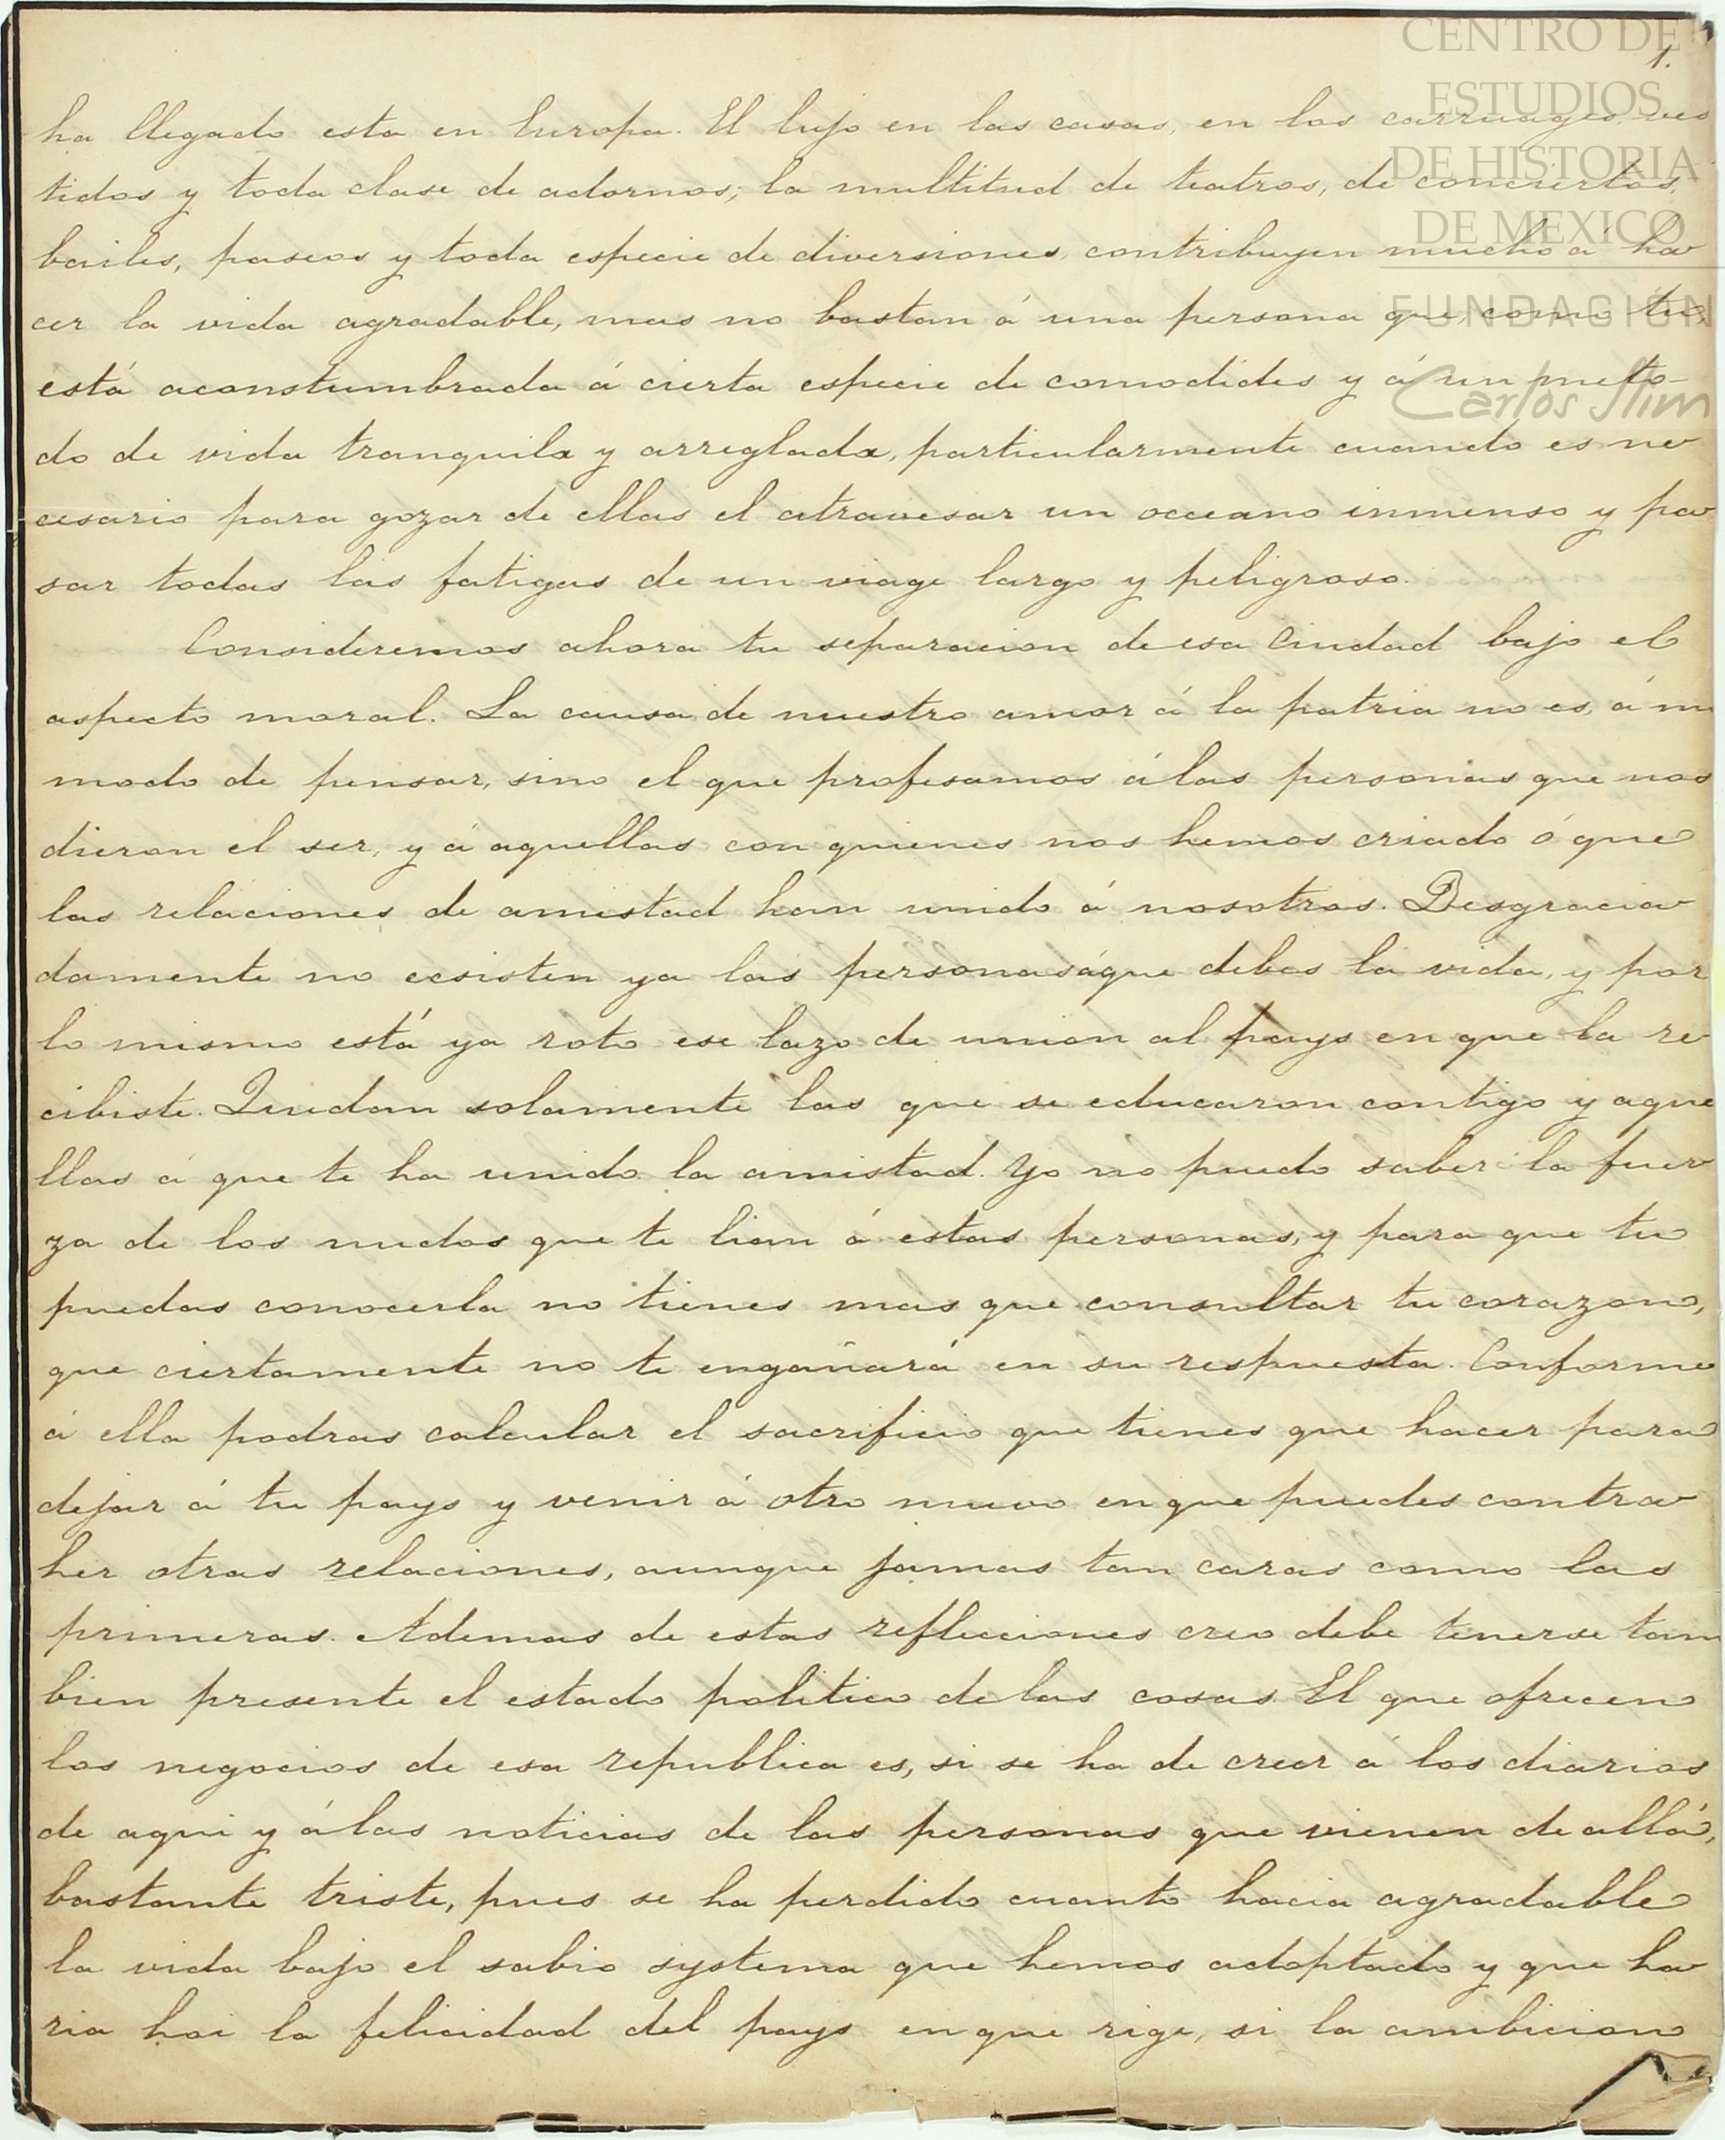 CENTRO DE
ESTUDIOS
DE HISTORIA
DE MEXICO
FUNDACIÓN
Carlos Slim
1.
ha llegado esta en Europa. El lujo en las casas, en los carruages, ves
tidos y toda clase de adornos; la multitud de teatros, de conciertos,
bailes, paseos y toda especie de diversiones, contribuyen mucho á ha
cer la vida agradable, mas no bastan á una persona que, como tu,
está aconstumbrada á cierta especie de comodides y á un meto-
do de vida tranquila y arreglada, particularmente cuando es ne
cesario para gozar de ellas el atravesar un occeano inmenso y pa
sar todas las fatigas de un viage largo y peligroso.
Consideremos ahora tu separacion de esa Ciudad bajo el
aspecto moral. La causa de nuestro amor á la patria no es, á mi
modo de pensar, sino el que profesamos á las personas que nos
dieron el ser, y á aquellas con quienes nos hemos criado ó que
las relaciones de amistad han unido á nosotros. Desgracia
damente no ecsisten ya las personas á que debes la vida, y por
lo mismo está ya roto ese lazo de union al pays en que la re
cibiste. Quedan solamente las que se educaron contigo y aque
llas á que te ha unido la amistad. Yo no puedo saber la fuer
za de los nudos que te lian á estas personas, y para que tu
puedas conocerla no tienes mas que consultar tu corazon,
que ciertamente no te engañará en su respuesta. Conforme
á ella podras calcular el sacrificio que tienes que hacer para
dejar á tu pays y venir á otro nuevo en que puedes contra
her otras relaciones, aunque jamas tan caras como las
primeras. Ademas de estas reflecciones creo debe tenerse tam
bien presente el estado politico de las cosas. El que ofrecen
los negocios de esa republica es, si se ha de creer á los diarios
de aqui y á las noticias de las personas que vienen de allá,
bastante triste, pues se ha perdido cuanto hacia agradable
la vida bajo el sabio systema que hemos adoptado y que ha
ria hoi la felicidad del pays en que rige, si la ambicion